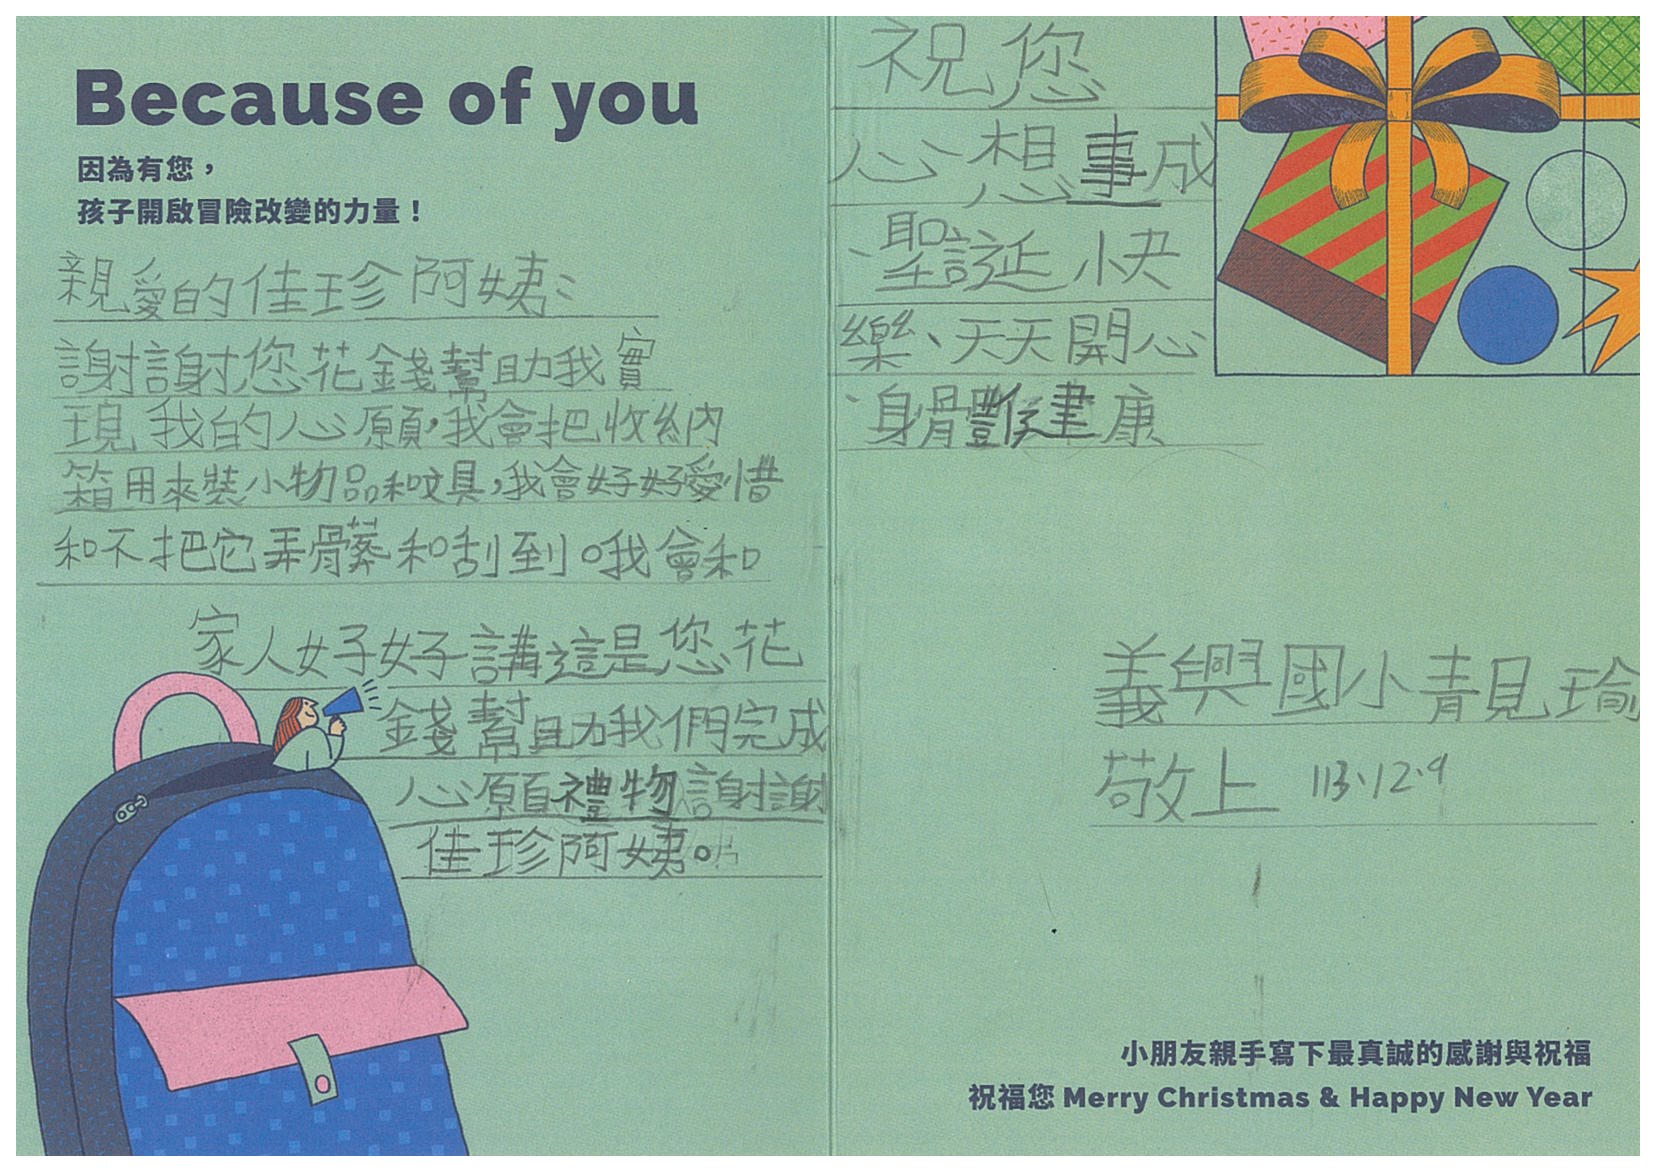 Because of you
因為有您，
孩子開啟冒險改變的力量！
親愛的佳珍阿姨：
謝謝您花錢幫助我實
現我的心願，我會把收納
箱用來裝小物品和文具，我會好好愛惜
和不把它弄髒和刮到。我會和
家人好好講這是您花
錢幫助我們完成
心願禮物謝謝
佳珍阿姨。
祝您
心想事成
、聖誕快
樂、天天開心
、身體健康
義興國小 靚瑜
敬上 113.12.9
小朋友親手寫下最真誠的感謝與祝福
祝福您 Merry Christmas & Happy New Year